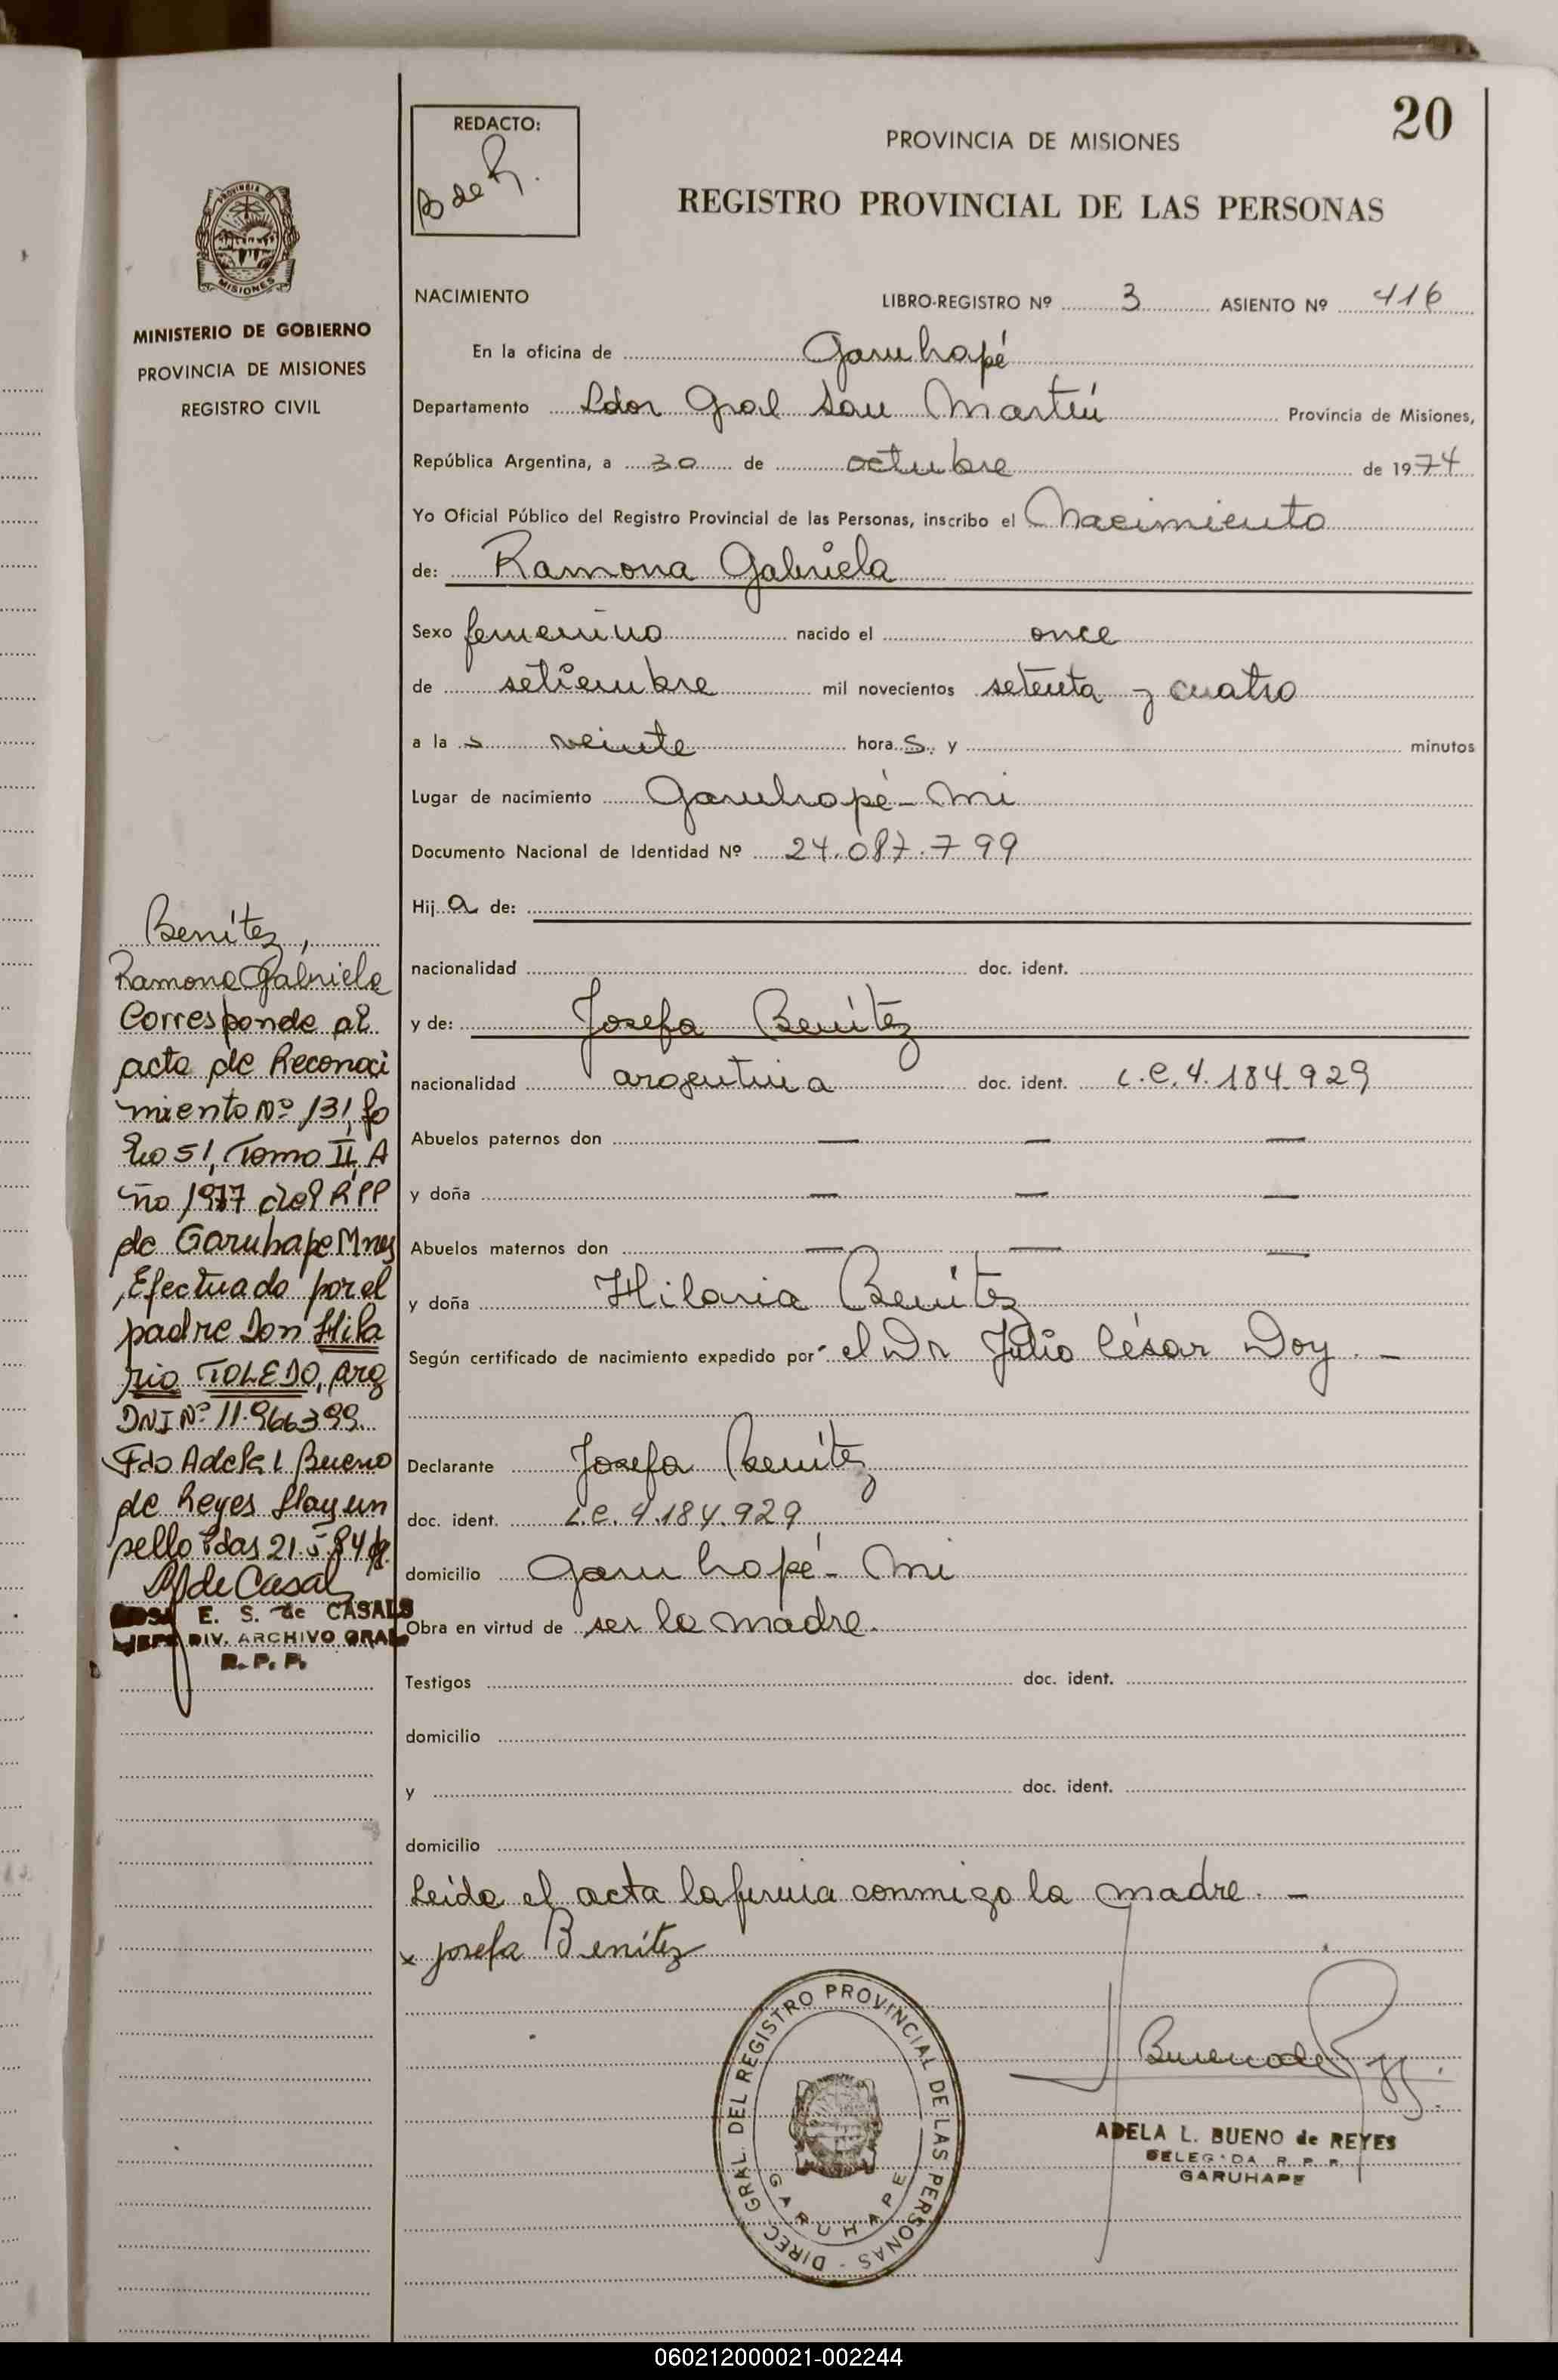 20
REDACTO:
B de R.
PROVINCIA DE MISIONES
REGISTRO PROVINCIAL DE LAS PERSONAS
PROVINCIA
MISIONES
MINISTERIO DE GOBIERNO
PROVINCIA DE MISIONES
REGISTRO CIVIL
NACIMIENTO LIBRO-REGISTRO Nº 3 ASIENTO Nº 416
En la oficina de Garuhapé
Departamento Ldor Gral San Martín Provincia de Misiones,
República Argentina, a 30 de octubre de 1974
Yo Oficial Público del Registro Provincial de las Personas, inscribo el Nacimiento
de: Ramona Gabriela
Sexo femenino nacido el once
de setiembre mil novecientos setenta y cuatro
a la s veinte hora s. y minutos
Lugar de nacimiento Garuhapé - Mi
Documento Nacional de Identidad Nº 24.087.799
Hij a de:
nacionalidad doc. ident.
y de: Josefa Benítez
nacionalidad argentina doc. ident. L.C. 4.184.929
Abuelos paternos don — — —
y doña — — —
Abuelos maternos don — — —
y doña Hilaria Benítez
Según certificado de nacimiento expedido por el Dr Julio César Doy. —
Declarante Josefa Benítez
doc. ident. L.C. 4.184.929
domicilio Garuhapé - Mi
Obra en virtud de ser la madre.
Testigos doc. ident.
domicilio
y doc. ident.
domicilio
Leida el acta la firma conmigo la madre. —
x josefa Benítez
Benítez,
Ramona Gabriela
Corresponde al
acta de Reconoci
miento Nº 131, fo
lio 51, Tomo II, A
ño 1977 del RPP
de Garuhape Mnes
, Efectuado por el
padre Don Hila
rio TOLEDO, arg
DNI Nº 11.966399
Fdo Adela L Bueno
de Reyes Hay un
sello Pdas 21.5.84
de Casal
E. S. de CASALS
JEFE DIV. ARCHIVO GRAL
R. P. P.
DIREC. GRAL. DEL REGISTRO PROVINCIAL DE LAS PERSONAS -
GARUHAPE
Bueno de
ADELA L. BUENO de REYES
DELEGADA R. P. P.
GARUHAPE
060212000021-002244